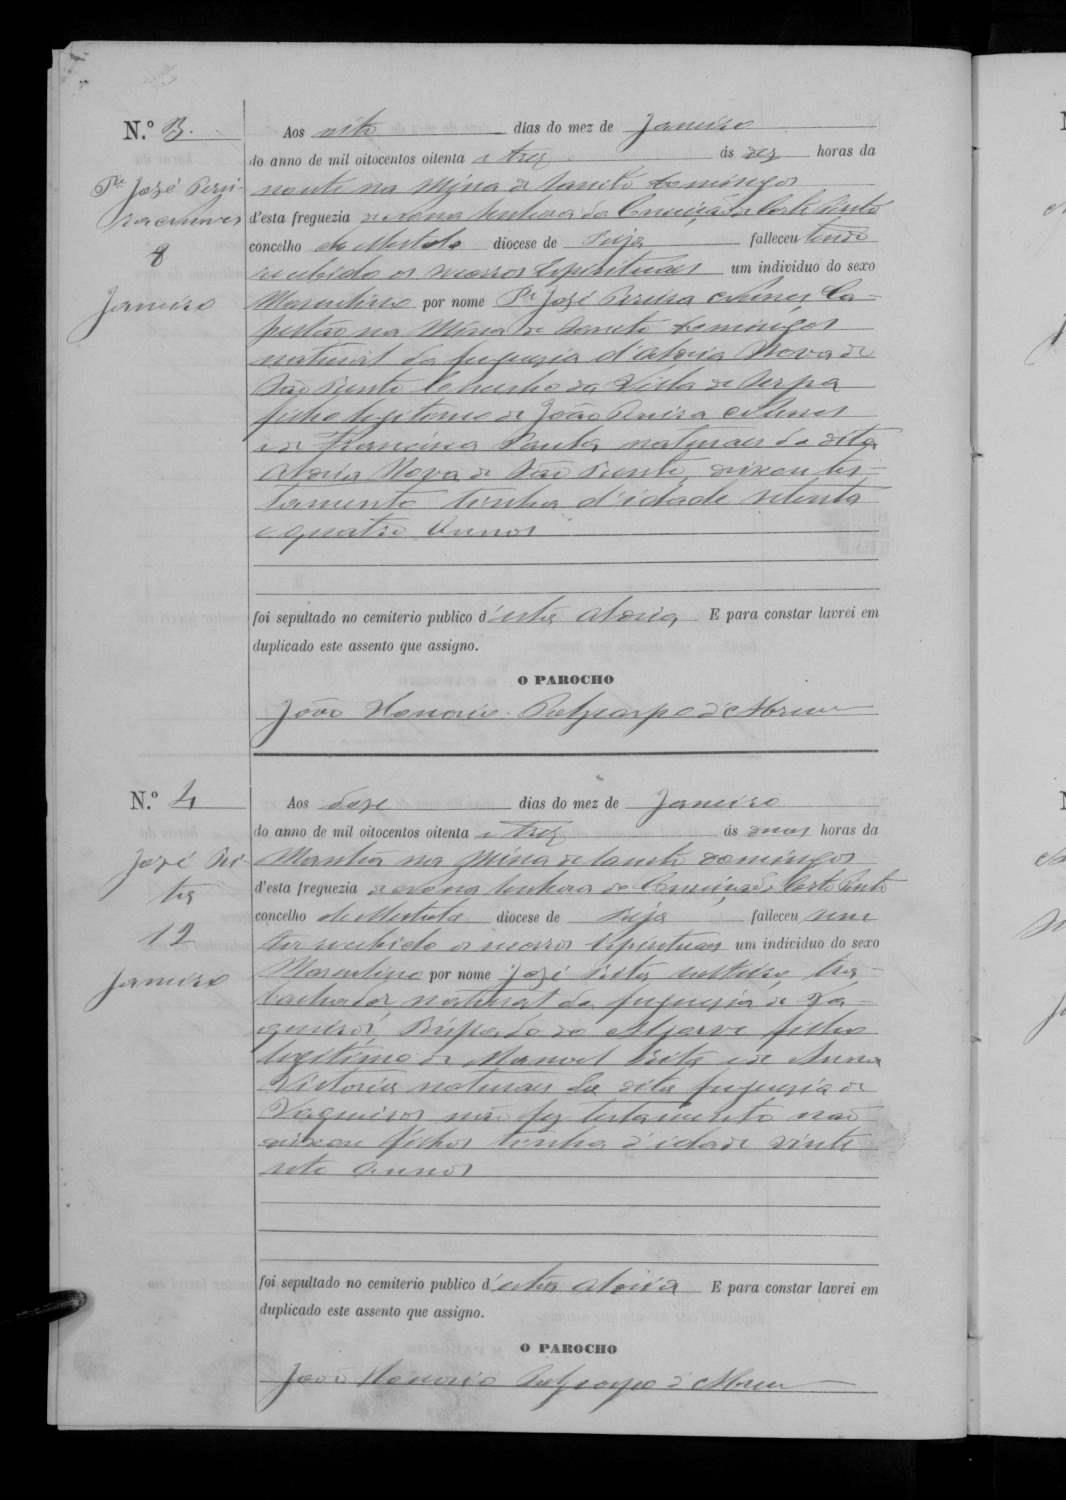 N.º 3.
Pe José Perei-
ra e Nunes
8
Janeiro
Aos oito dias do mez de Janeiro
do anno de mil oitocentos oitenta e trez ás dez horas da
noute na Mina de Sancto Domingos
d'esta freguezia de Nossa Senhora da Conceição da Corte Pinto
concelho de Mertola diocese de Beja falleceu tendo
recebido os socorros Espirituaes um individuo do sexo
Masculino por nome Pe José Pereira e Nunes Ca-
pellão na Mina de Sancto Domingos
natural da freguezia d'Aldeia Nova de
São Bento Concelho da Villa de Serpa
filho legitimo de João Pereira e Nunes
e de Francisca Paula naturaes da dita
Aldeia Nova de São Bento, deixou tes-
tamento tinha d'idade setenta
e quatro Annos
foi sepultado no cemiterio publico d'esta Aldeia E para constar lavrei em
duplicado este assento que assigno.
O PAROCHO
João Honorio Polycarpo d'Abreu
N.º 4
José Ri-
ta
12
Janeiro
Aos doze dias do mez de Janeiro
do anno de mil oitocentos oitenta e trez ás duas horas da
Manhã na Mina de Sancto Domingos
d'esta freguezia de Nossa Senhora da Conceição da Corte Pinto
concelho de Mertola diocese de Beja falleceu sem
ter recebido os socorros Espirituaes um individuo do sexo
Masculino por nome José Rita, solteiro, tra-
balhador natural da freguezia de Va-
queiros, Bispado do Algarve filho
legitimo de Manoel Rita e de Anna
Victoria naturaes da dita freguezia de
Vaqueiros não fez testamento não
deixou filhos tinha d'idade vinte
sete Annos
foi sepultado no cemiterio publico d'esta Aldeia E para constar lavrei em
duplicado este assento que assigno.
O PAROCHO
João Honorio Polycarpo d'Abreu